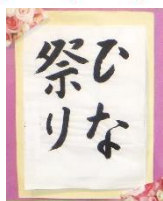 ひな
祭り